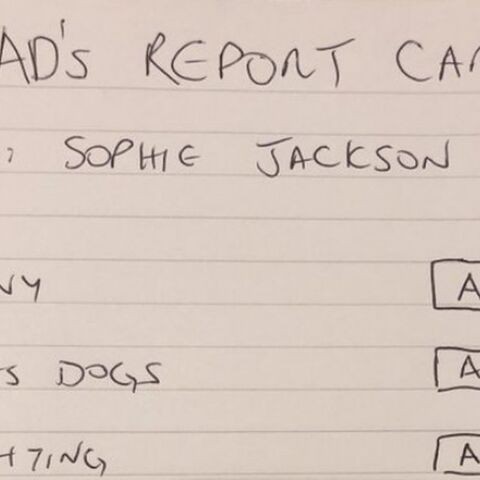 AD'S REPORT CAR
, SOPHIE JACKSON
NY A
S DOGS A
HTING A